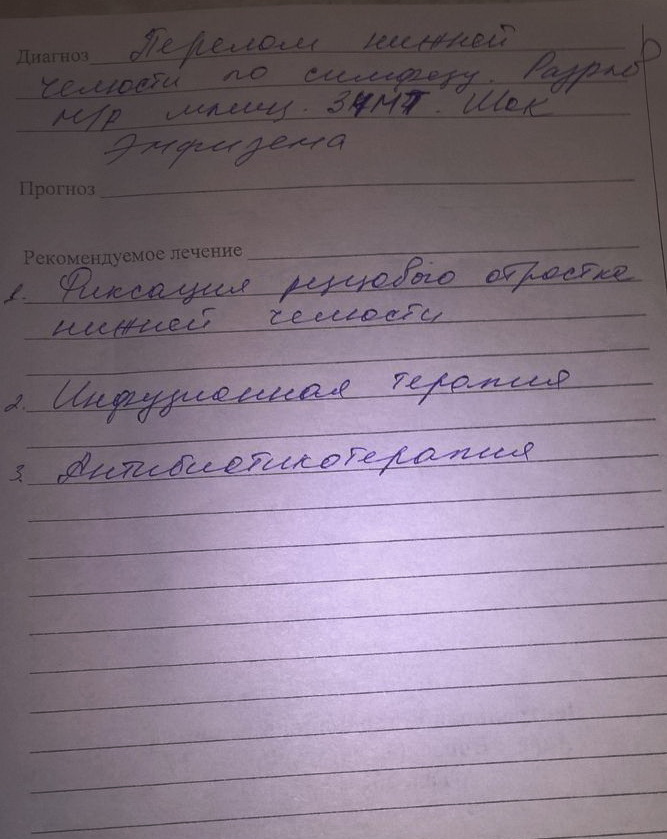 Диагноз Перелом нижней
челюсти по симфезу. Разрыв
м/р мышц. ЗЧМТ. Шок
Эмфизема
Прогноз
Рекомендуемое лечение
1. Фиксация резцового отростка
нижней челюсти
2. Инфузионная терапия
3. Антибиотикотерапия